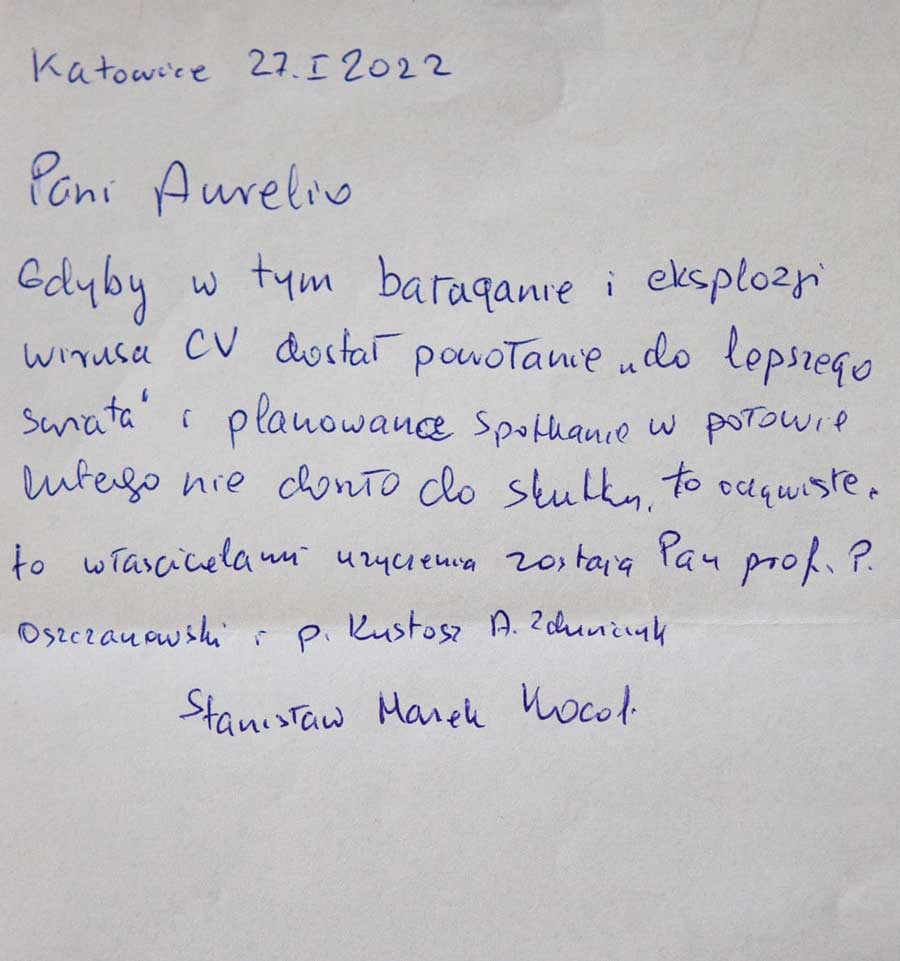 Katowice 27.I 2022
Pani Aurelio
Gdyby w tym bałaganie i eksplozji
wirusa CV dostał powołanie „do lepszego
świata" i planowane spotkanie w połowie
lutego nie doszło do skutku, to
to właścicielami użyczenia zostają Pan prof. P.
Oszczanowski i p. Kustosz A. Zduniczyk
Stanisław Marek Kocot.